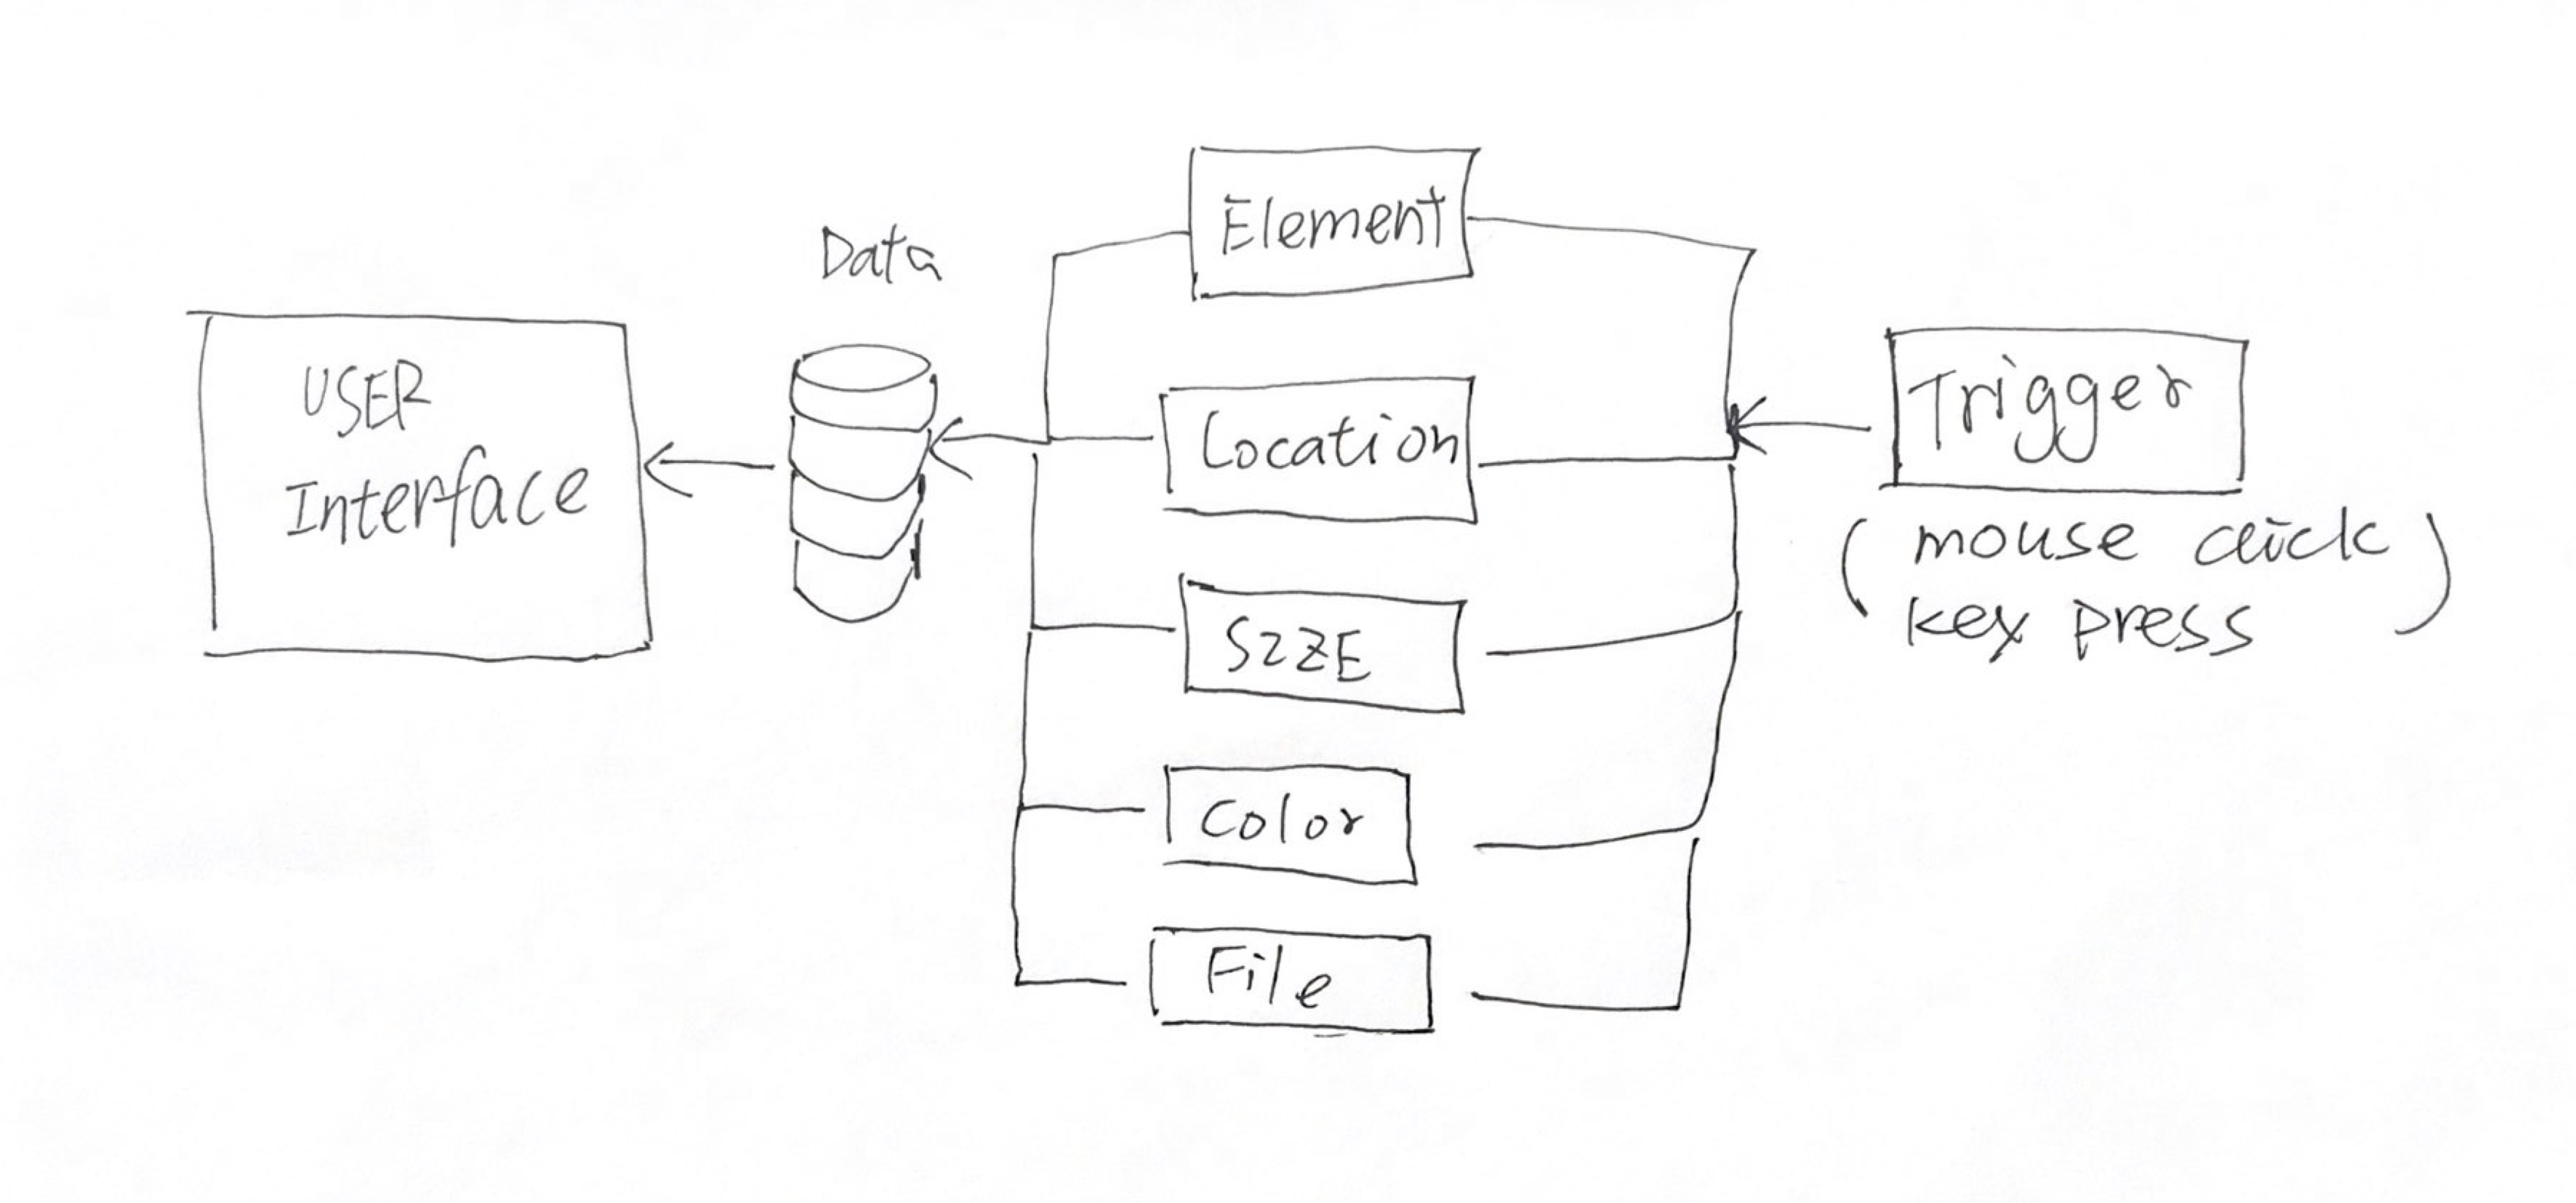 Data
USER
Interface
Element
Location
SIZE
Color
File
Trigger
( mouse click
key press )